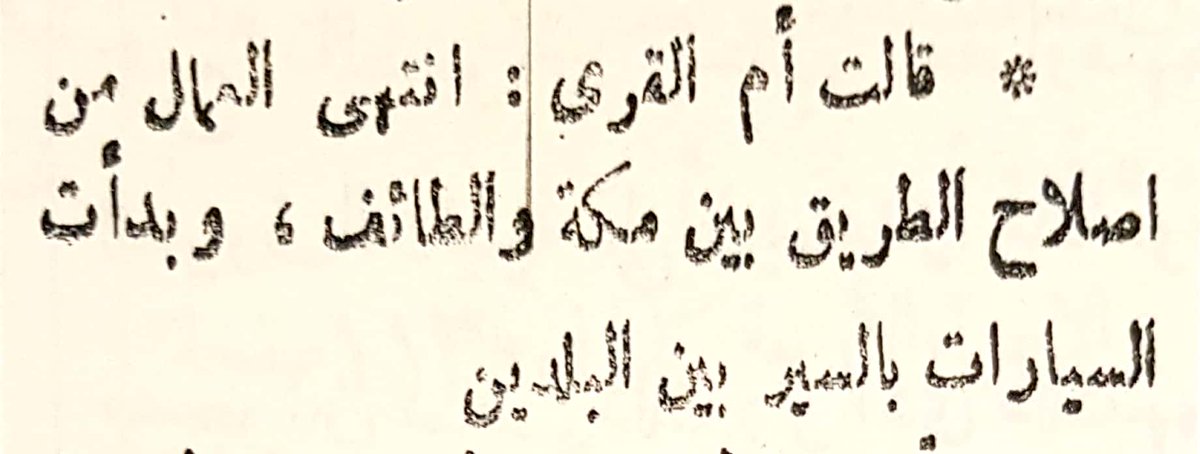 * قالت أم القرى : انتهى العمال من
اصلاح الطريق بين مكة والطائف ، وبدأت
السيارات بالسير بين البلدين